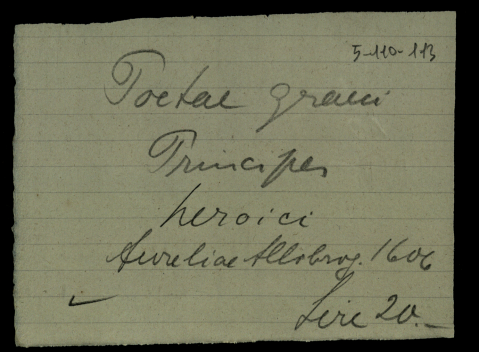 5-110-113
Poetae graeci
Principes
heroici
Aureliae Allobrog. 1606
Lire 20.-